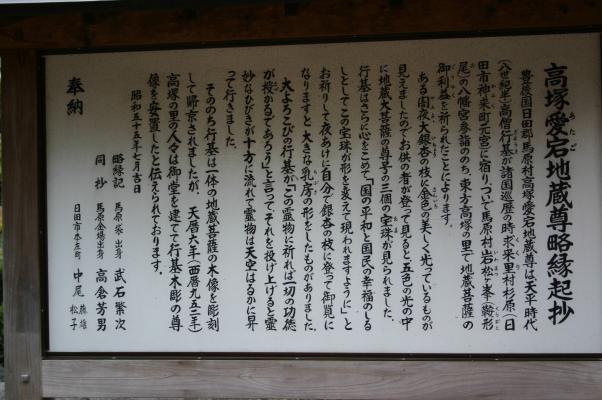 高塚愛宕地蔵尊略縁起抄
あたご
豊後国日田郡馬原村高塚愛宕地蔵尊は天平時代
(八世紀中)高僧行基が諸国巡歴の時求来里村杉原(日
田市神来町元宮)に宿りついで馬原村岩松ヶ峯(鞍形
尾)の八幡宮参詣ののち、東方高塚の里で地蔵菩薩の
御利益を祈られたことによります。
ある闇夜、大銀杏の枝に五色の美しく光っているものが
見えましたのでお供の者が登って見ると五色の光の中
に地蔵大菩薩の尊字の三個の宝珠が見られました。
行基はさらに心をこめて「国の平和と国民の幸福のしる
しとしてこの宝珠が形を変えて現われますように」と
お祈りして夜あけに自分で銀杏の枝に登って御覧に
なりますと大きな乳房の形をしたものがありました。
大よろこびの行基が「この霊物に祈れば一切の功徳
が授かるであろう」と言って、それを投げ上げると霊
妙なひびきが十方に流れて霊物は天空はるかに昇
って行きました。
そののち行基は一体の地蔵菩薩の木像を彫刻
して帰京されましたが、天暦六年(西暦九五二年)
高塚の里の人々は御堂を建てて行基木彫の尊
像を安置したと伝えられております。
昭和五十五年七月吉日
略縁記 馬原塚出身 武石繁次
同抄 馬原金場出身 高倉芳男
奉納
日田市本庄町 中尾 藤雄
松子